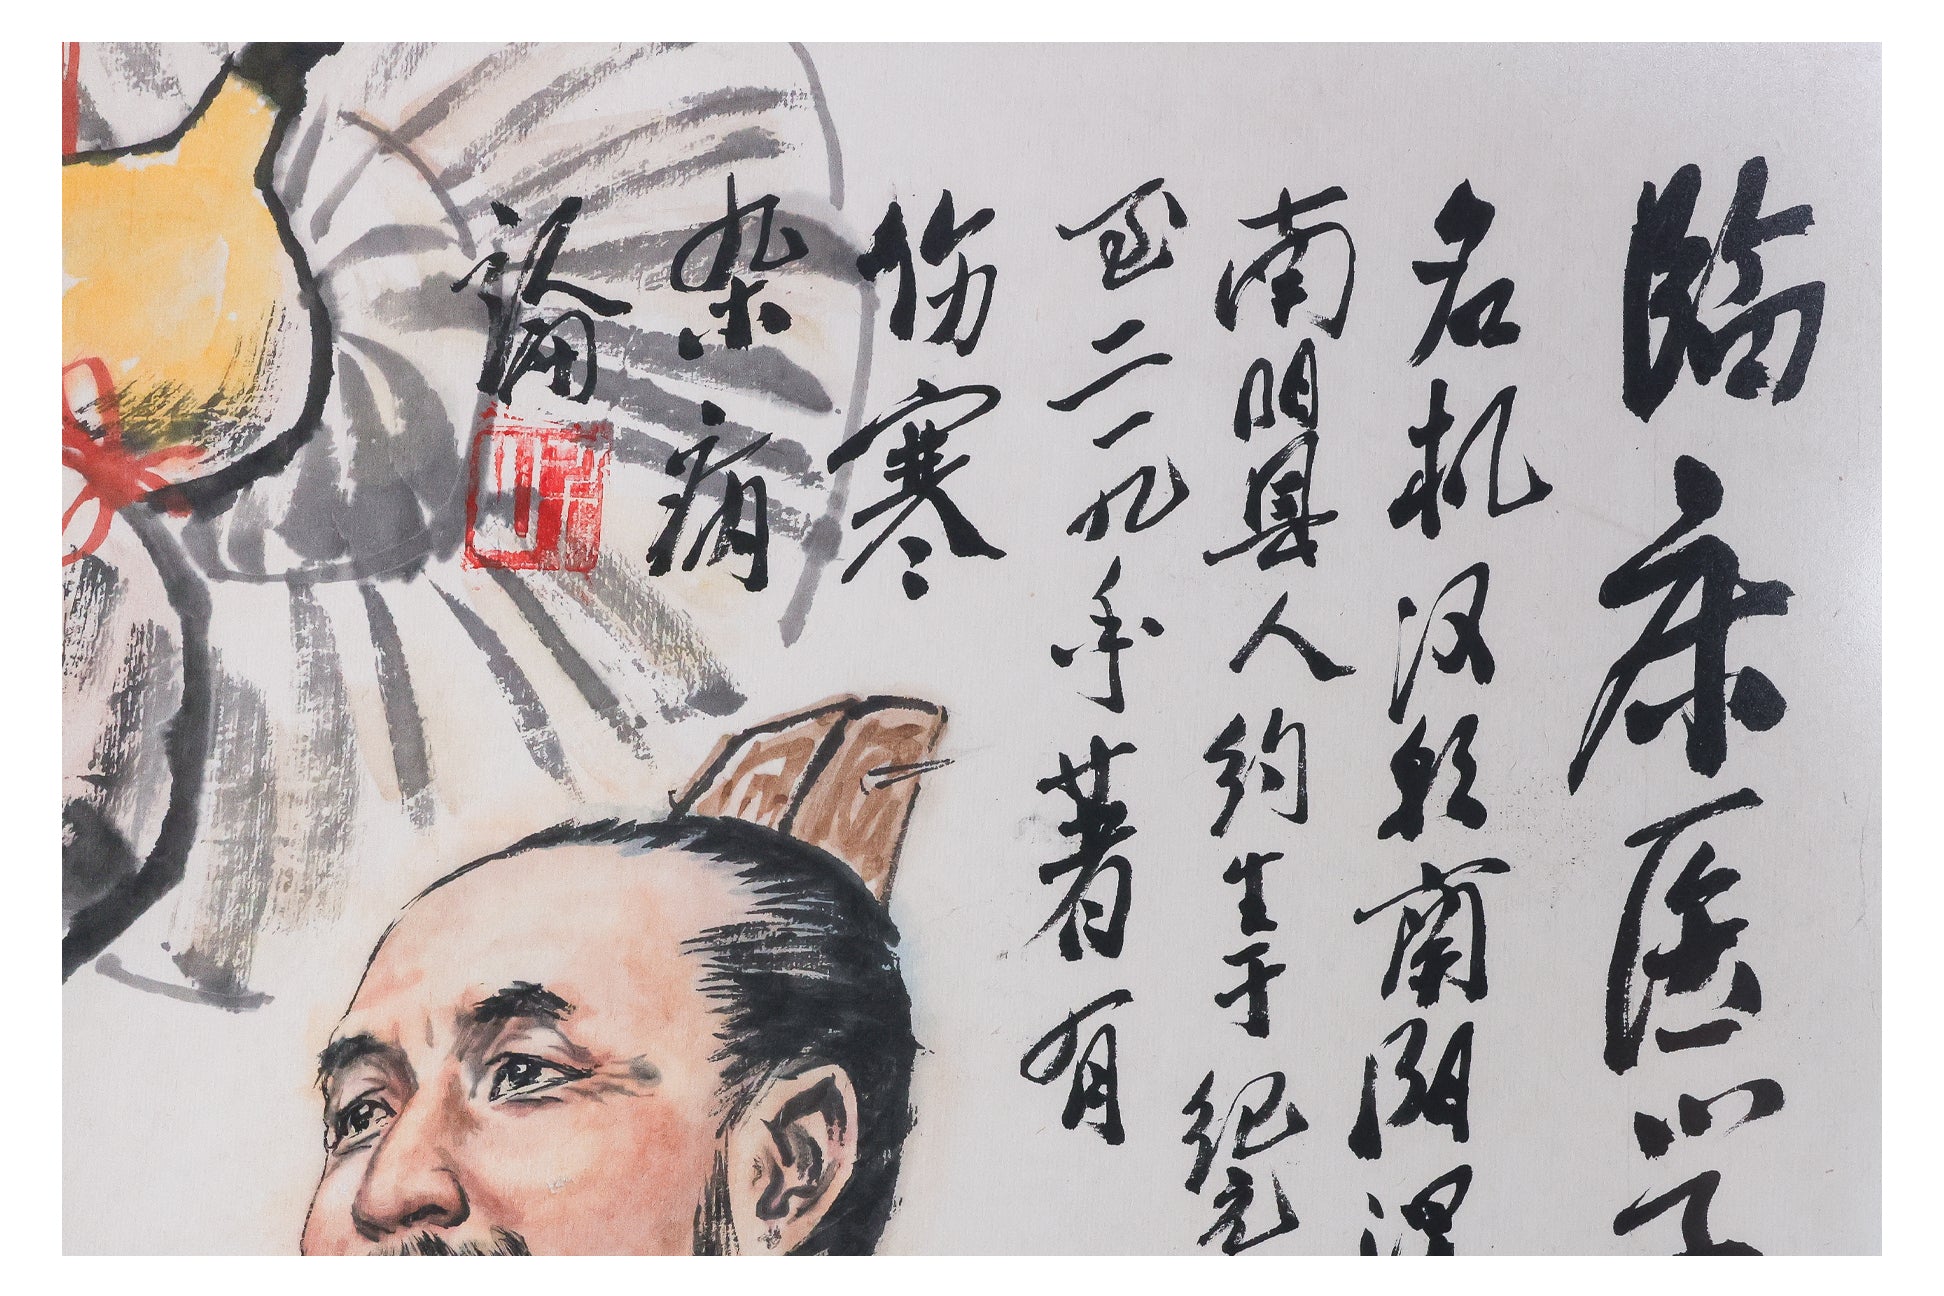 臨床医学
名机汉朝南阳涅
南阳县人约生于纪元
至二一九年著有
伤寒
杂病
論